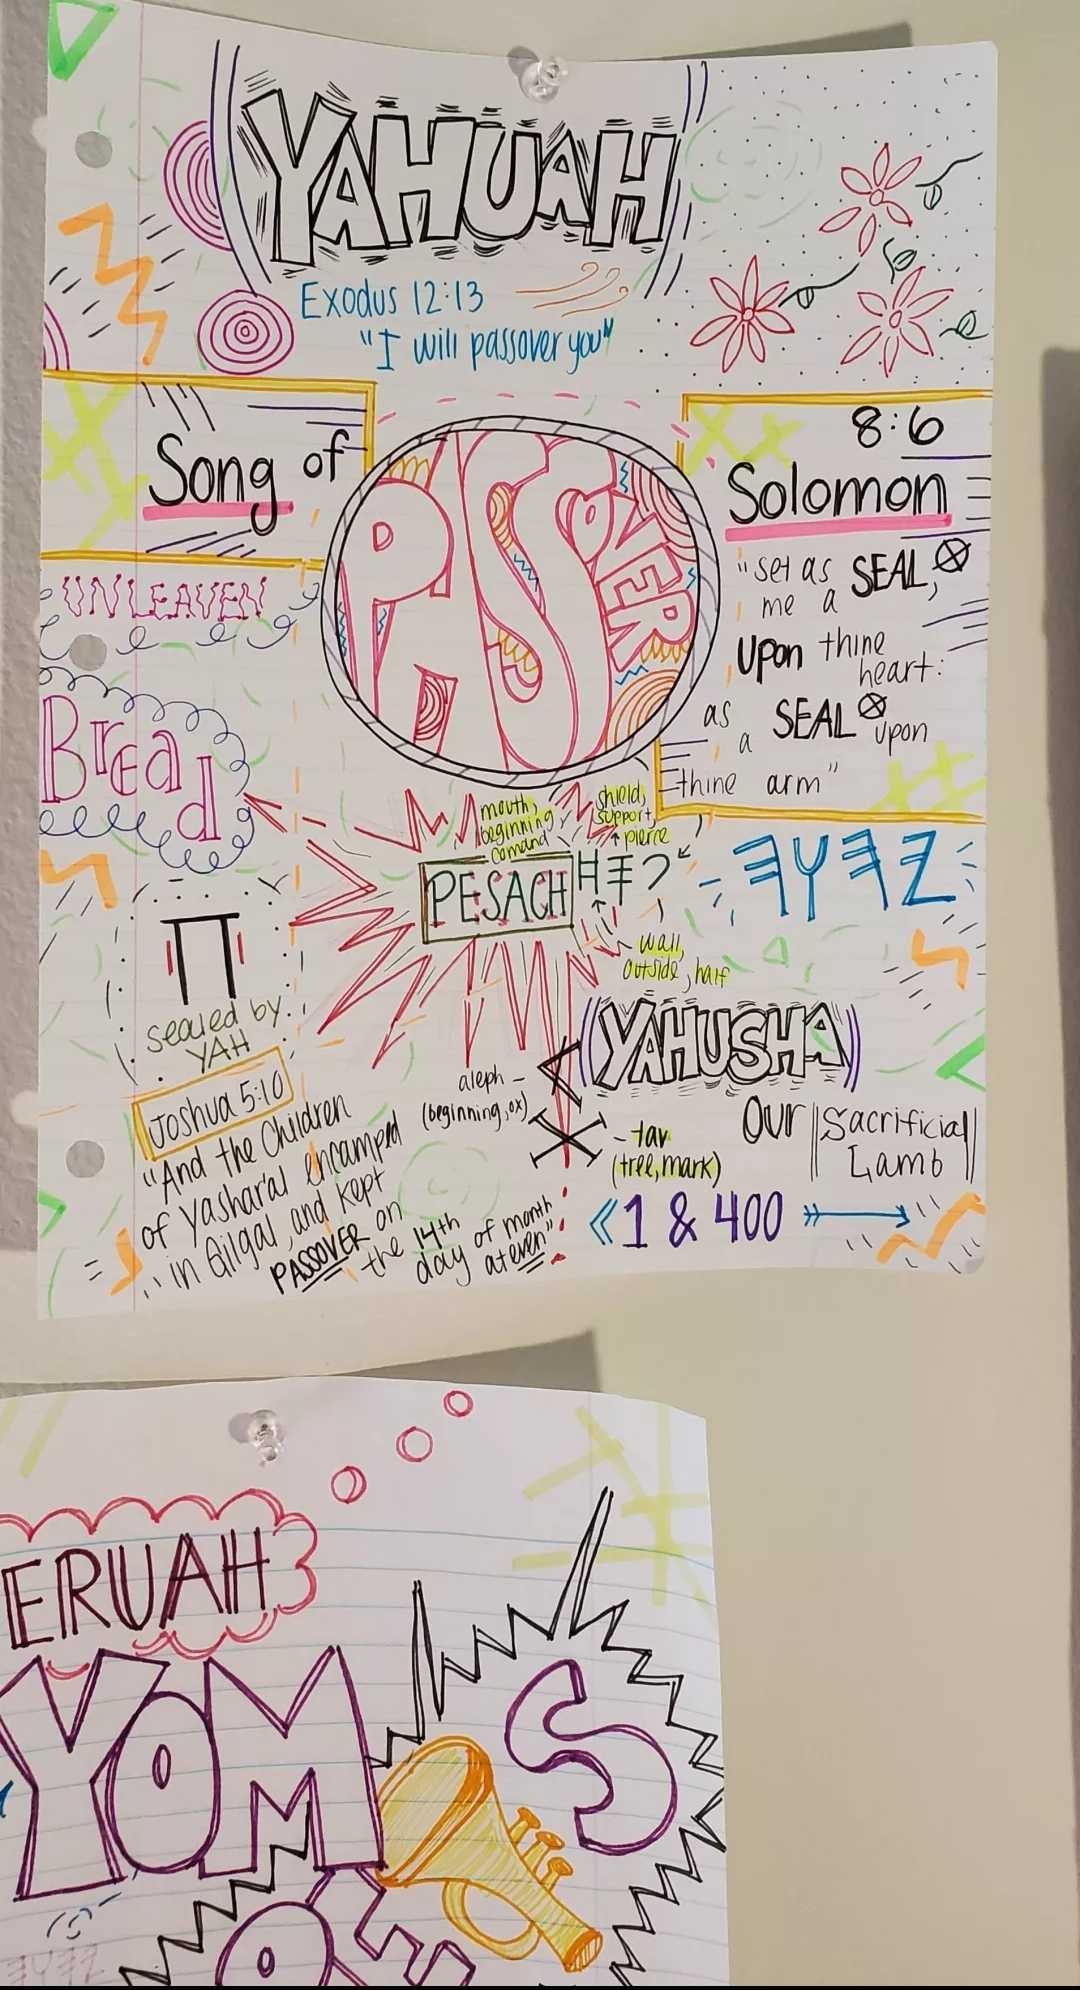 YAHUAH
Exodus 12:13
"I will passover you"
Song of
8:6
Solomon
PASSOVER
"set as SEAL,
me a
upon thine
heart:
as
a SEAL upon
thine arm"
UNLEAVEN
Bread
mouth,
beginning
comand
shield,
support,
pierce
PESACH 𐤇𐤎𐤐
wall,
outside, half
𐤄𐤅𐤄𐤉
sealed by
YAH
(YAHUSHA)
aleph -
(beginning, ox)
𐤀
X
- tav
(tree, mark)
Our Sacrificial
Lamb
1 & 400
Joshua 5:10
"And the Children
of Yashara'al encamped
in Gilgal, and kept
PASSOVER on
the 14th
day of month
at even"
ERUAH
YOM S
OF
𐤄𐤅𐤄𐤉